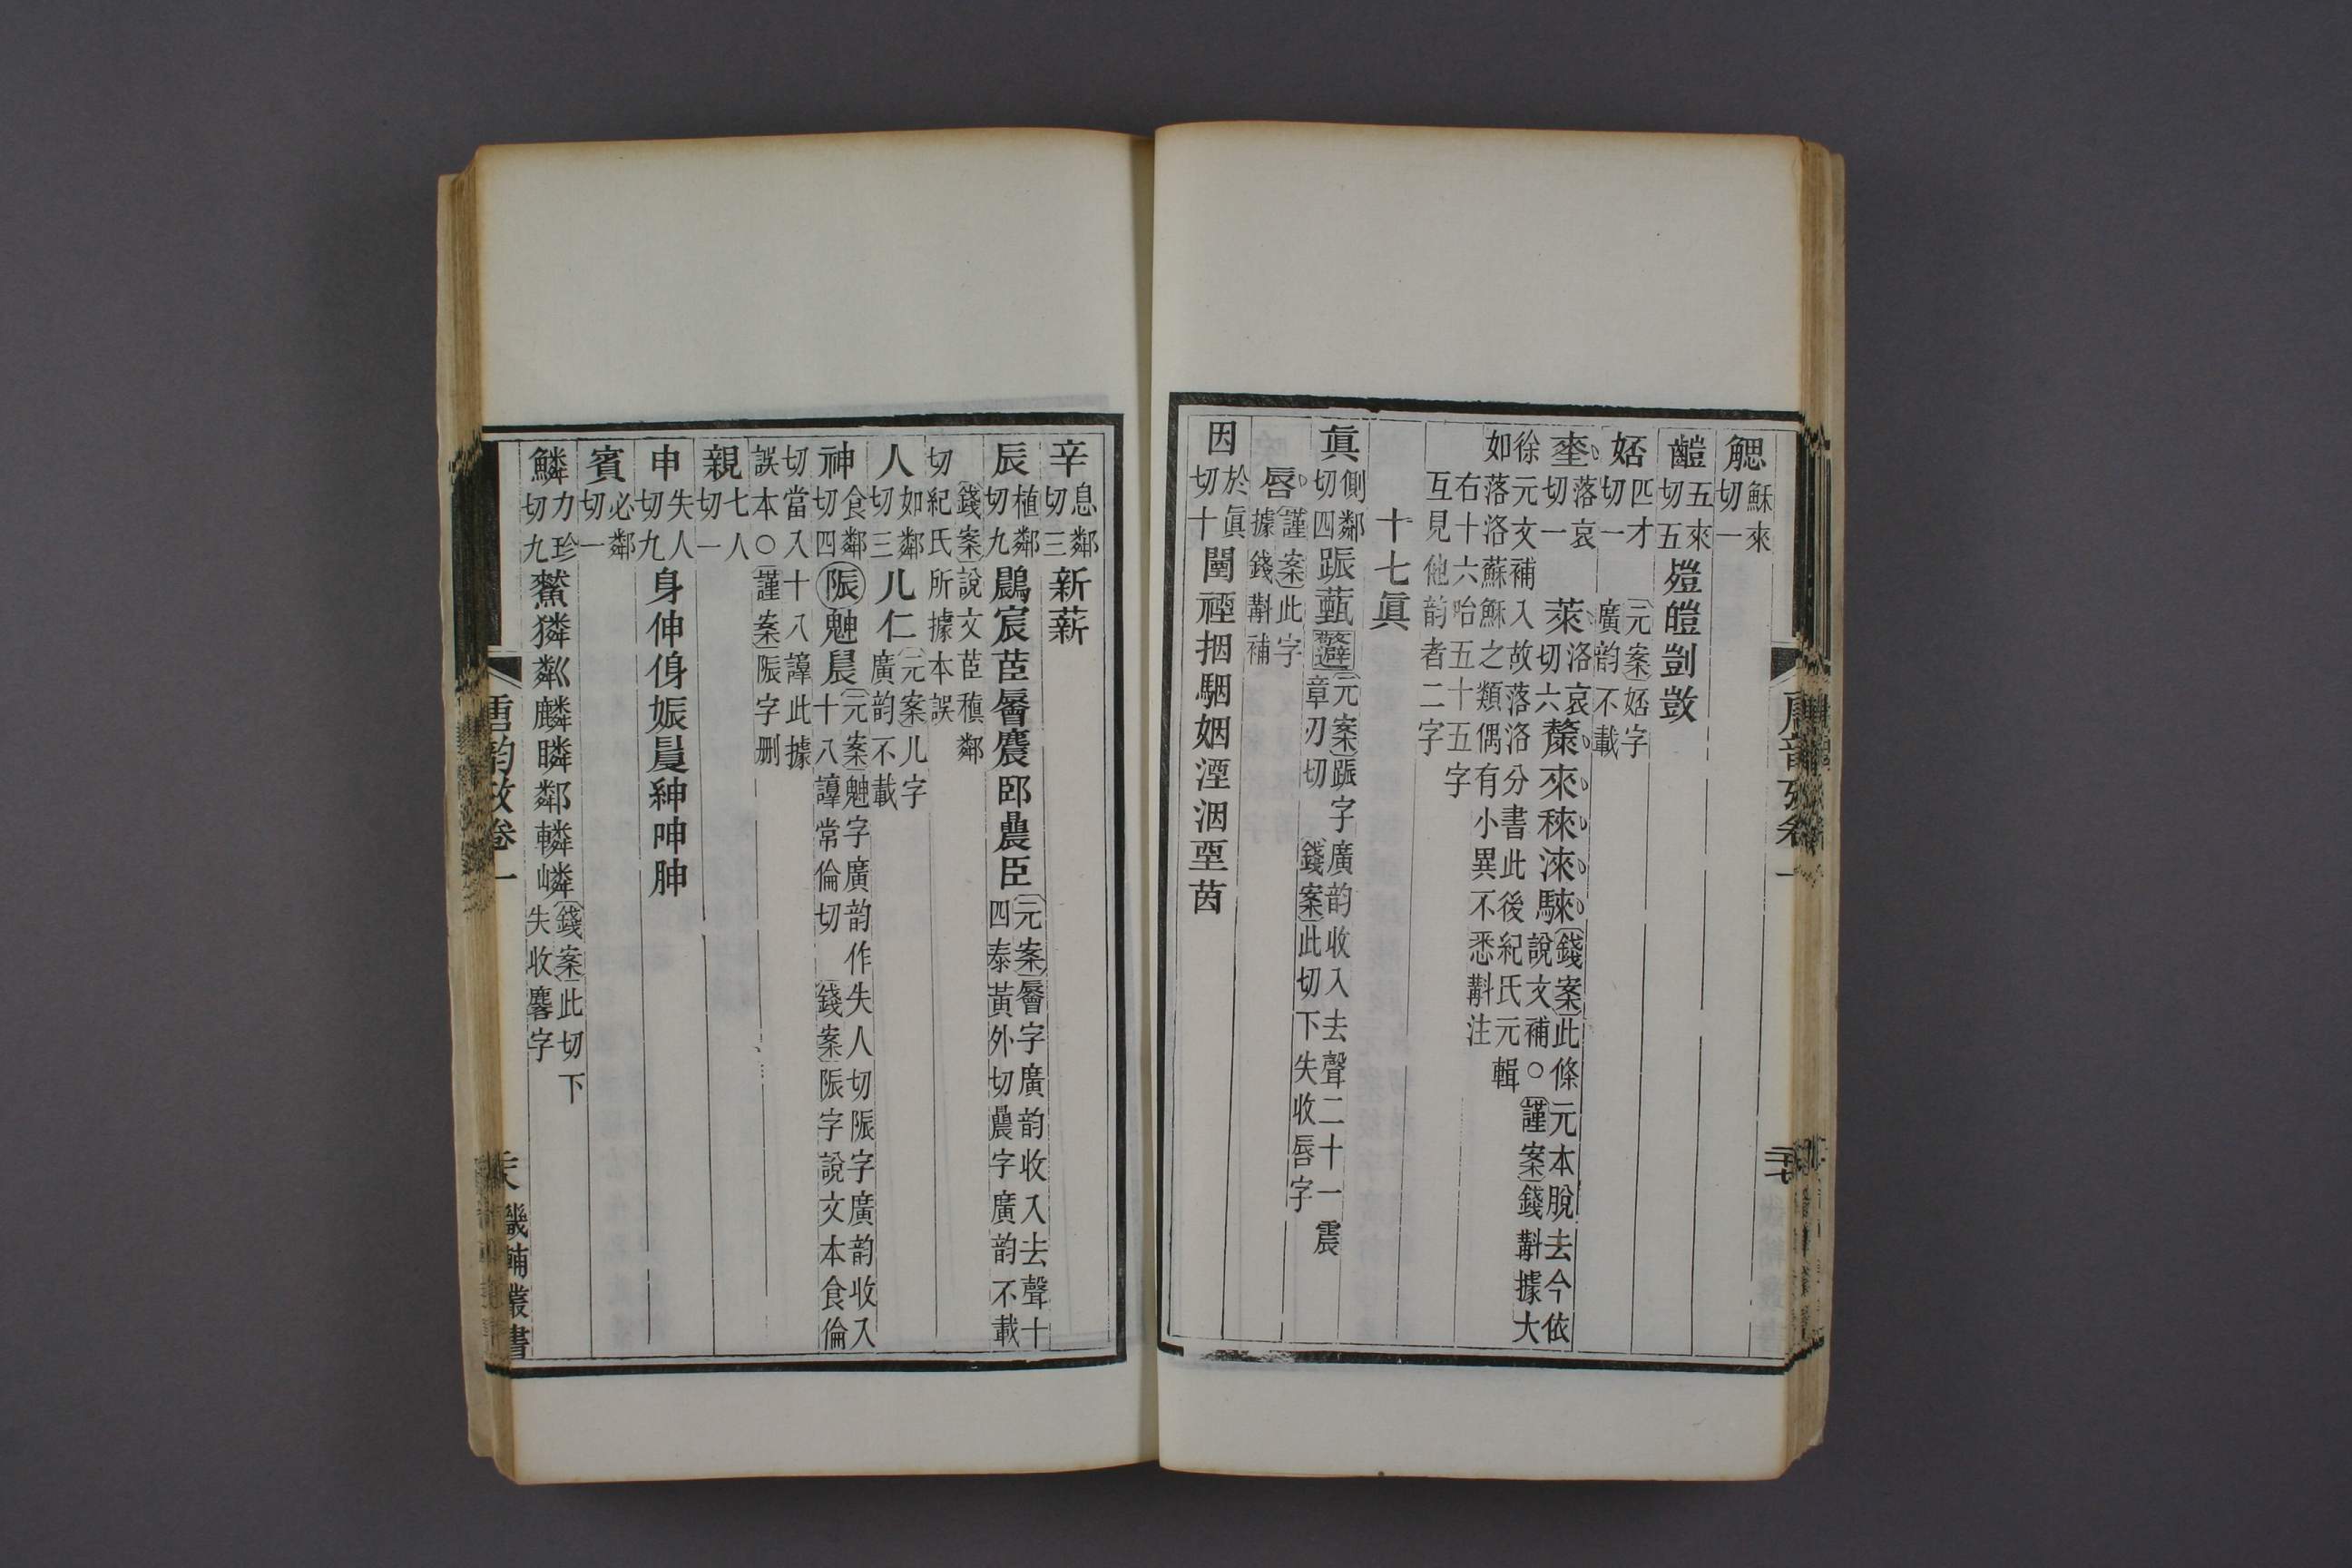 䚡穌來切一
齸五來切五 皚剴敳
㛅匹才切一 元案㛅字廣韵不載
坴落哀切一 萊洛哀切六 斄來秾淶騋 錢案此條元本脫去今依說文補○謹案錢斠據大
徐元文補入故落洛分書此後紀氏元輯
如落洛蘇穌之類偶有小異不悉斠注
右十六咍五十五字
互見他韵者二字
十七眞
眞側鄰切四 䟴薽 元案䟴字廣韵收入去聲二十一震章刃切 錢案此切下失收唇字
唇 謹案此字據錢斠補
因於眞切十 闉禋捆駰姻湮洇垔茵
唐韵攷卷一
二十七
辛息鄰切三 新薪
辰植鄰切九 鷐宸茞䢅麎䢈䢉臣 元案䢅字廣韵收入去聲十四泰黃外切䢉字廣韵不載
錢案說文茞稹鄰切紀氏所據本誤
人如鄰切三 儿仁 元案儿字廣韵不載
神食鄰切四 陙魋晨 元案魋字廣韵作失人切陙字廣韵收入十八諄常倫切 錢案陙字說文本食倫
切當入十八諄此據
誤本○謹案陙字刪
親七人切一
申失人切九 身伸侽娠㫳紳呻胂
賓必鄰切一
鱗力珍切九 㷠獜粼麟瞵鄰轔嶙 錢案此切下失收麐字
唐韵攷卷一
二十八
畿輔叢書